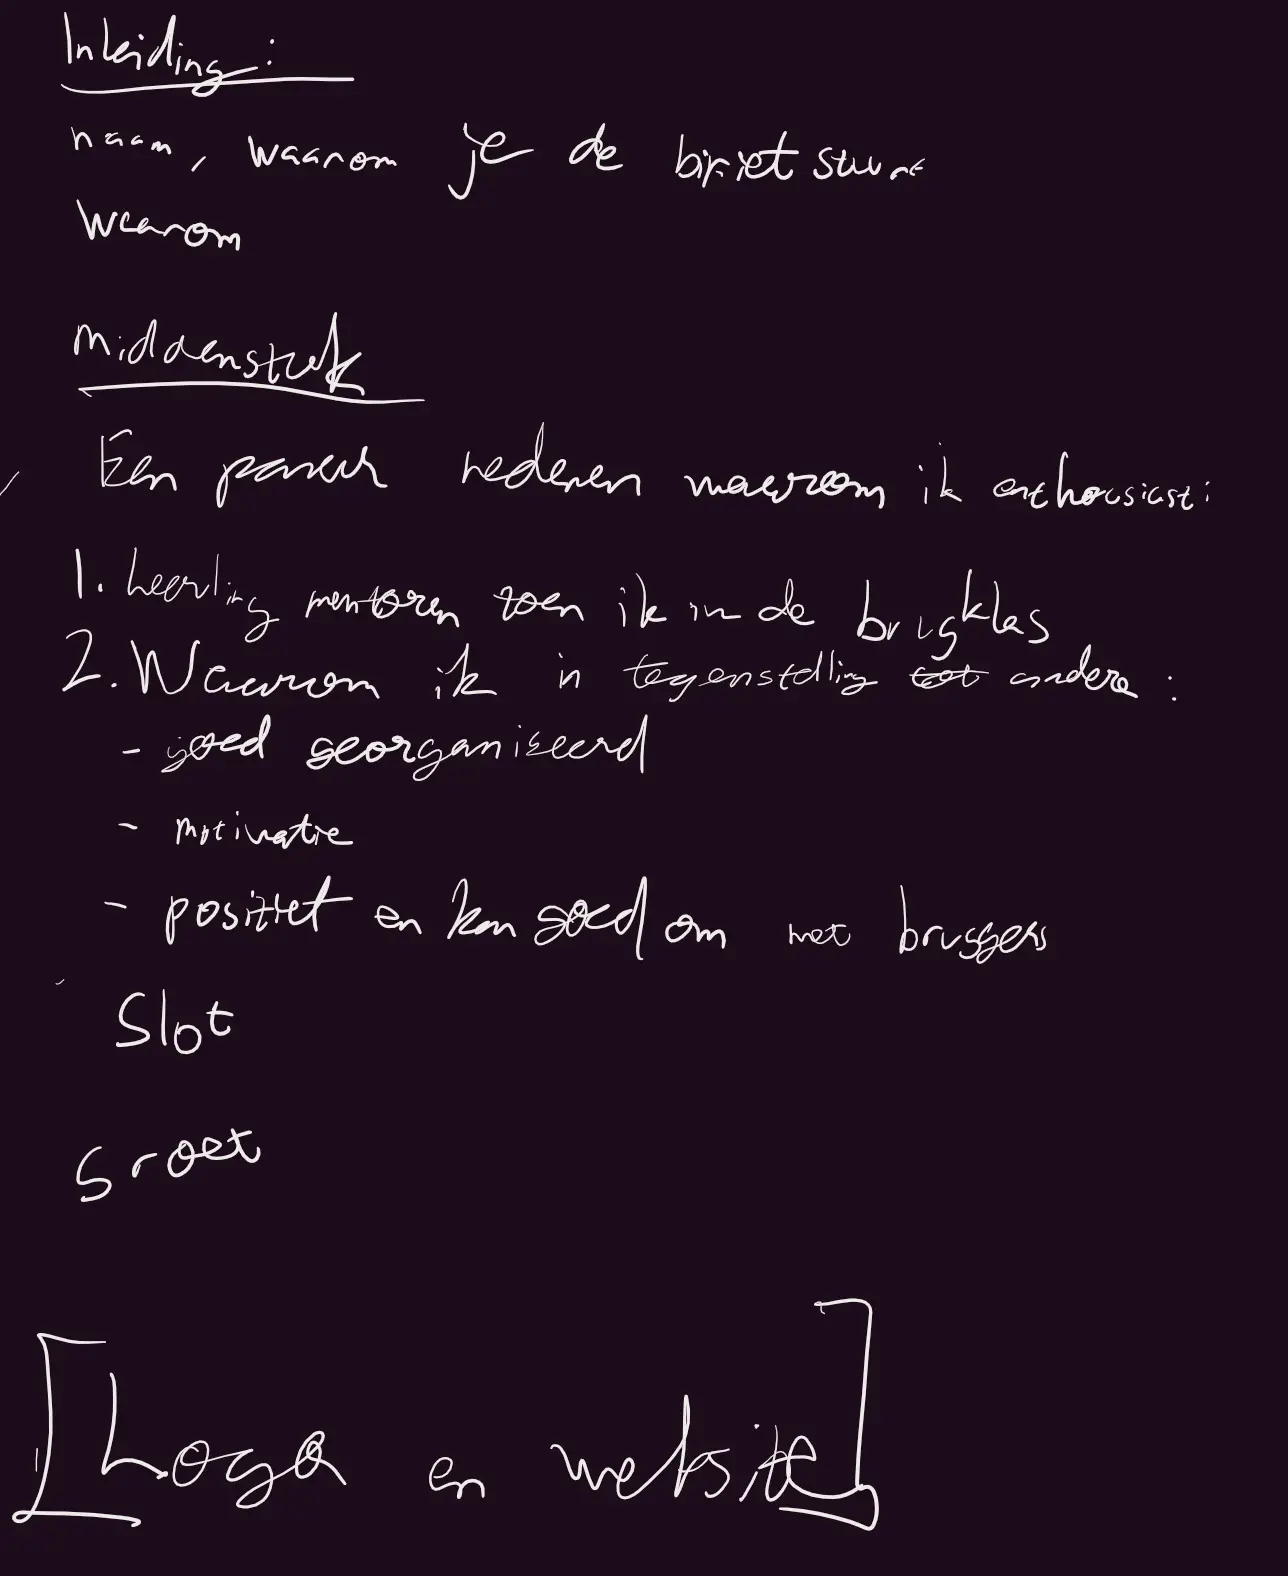 Inleiding:
naam, waarom je de brief stuurt
Waarom
Middenstuk
Een paar redenen waarom ik enthousiast:
1. Leerling mentoren toen ik in de brugklas
2. Waarom ik in tegenstelling tot andere:
- goed georganiseerd
- motivatie
- positief en kan goed om met bruggers
Slot
Groet
[Logo en website]